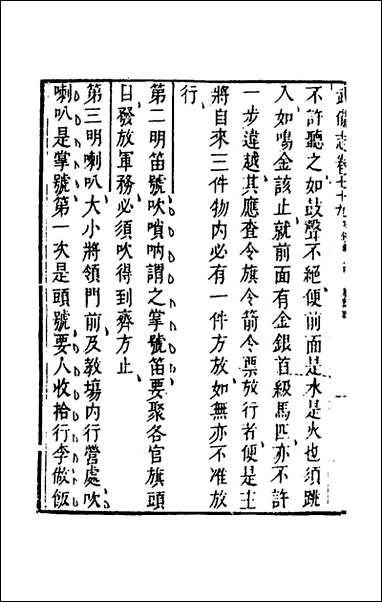 武備志卷七十九
不許聽之如鼓聲不絕便前面是水是火也須跳
入如鳴金該止就前面有金銀首級馬匹亦不許
一步違越其應查令旗令箭令票放行者便是主
將自來三件物内必有一件方放如無亦不准放
行
第二明笛號吹嗩吶謂之掌號笛要聚各官旗頭
目發放軍務必須吹得到齊方止
第三明喇叭大小將領門前及教場内行營處吹
喇叭是掌號第一次是頭號要人收拾行李做飯